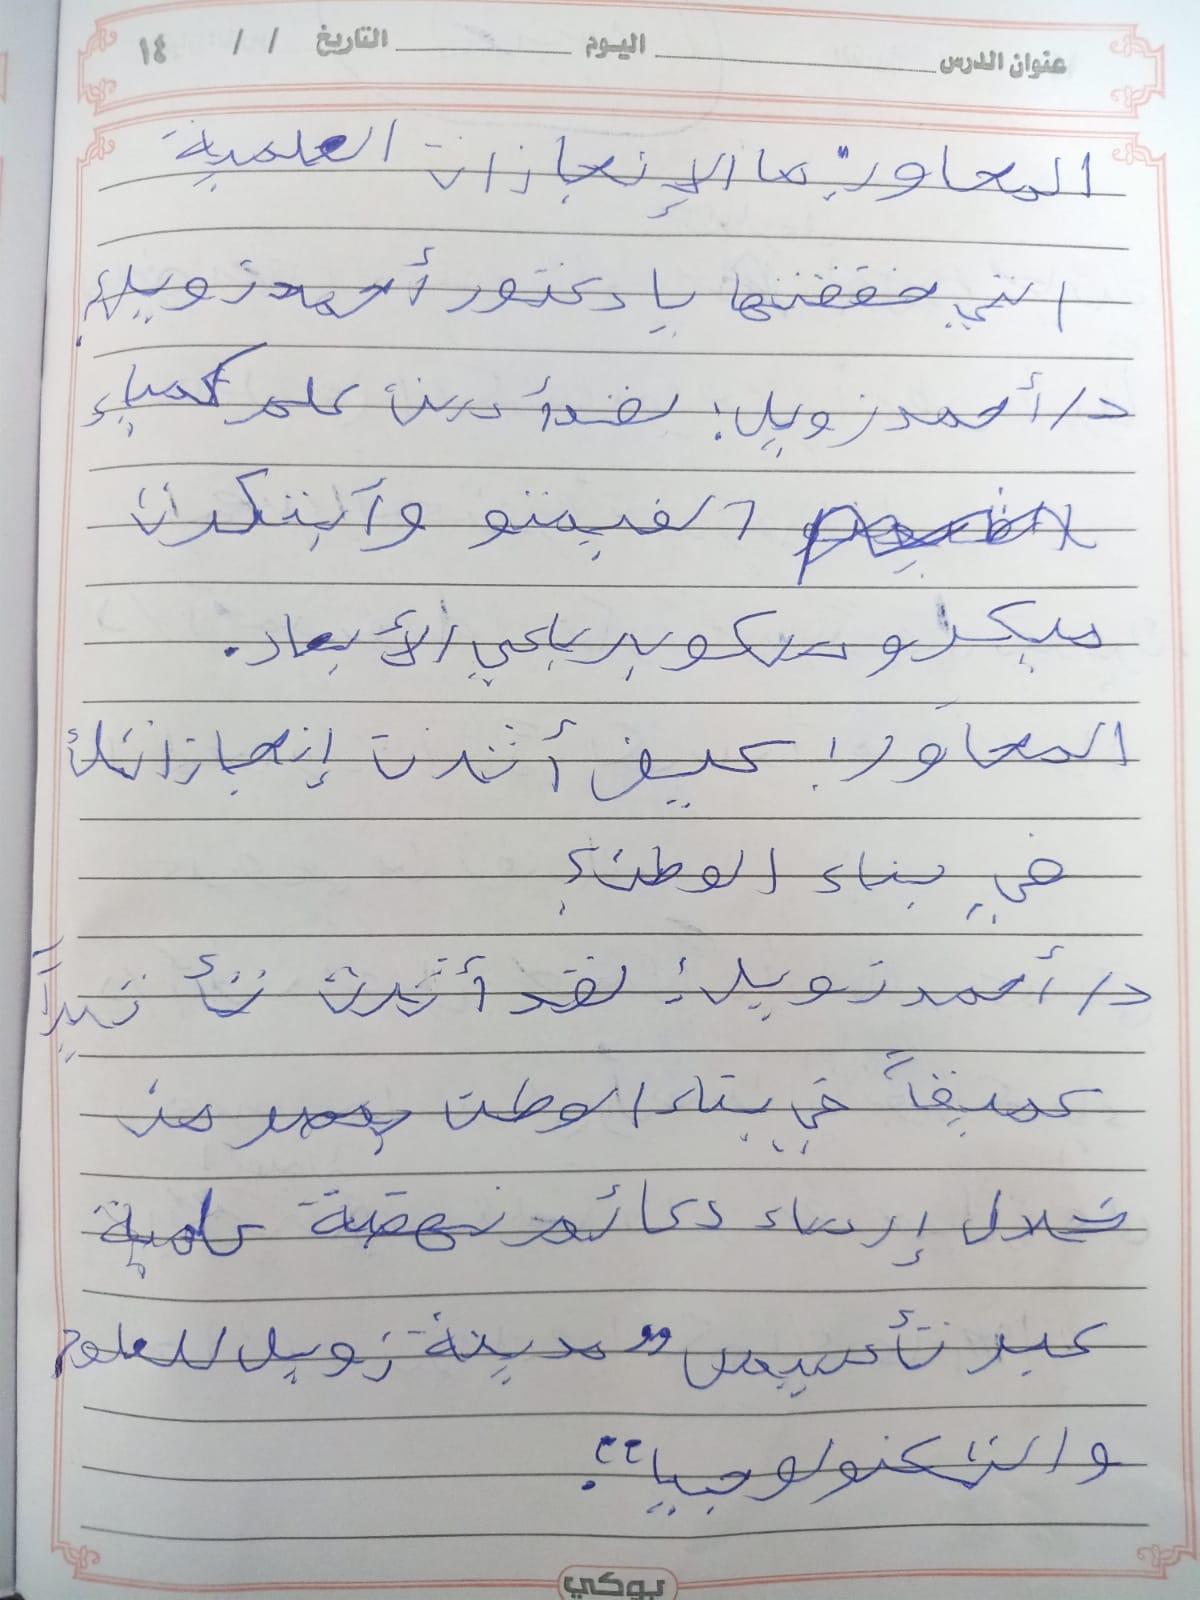 عنوان الدرس اليوم التاريخ / / ١٤
المحاور: ما الإنجازات العلمية
التي حققتها يا دكتور أحمد زويل؟
د/أحمد زويل: لقد أسست علم كمياء
الفيمتو وابتكرت
ميكروسكوب رباعي الأبعاد.
المحاور: كيف أثرت إنجازاتك
في بناء الوطن؟
د/أحمد زويل: لقد أثرت تأثيراً
عميقاً في بناء الوطن بمصر من
خلال إرساء دعائم نهضة علمية
عبر تأسيس "مدينة زويل للعلوم
والتكنولوجيا".
بوكي